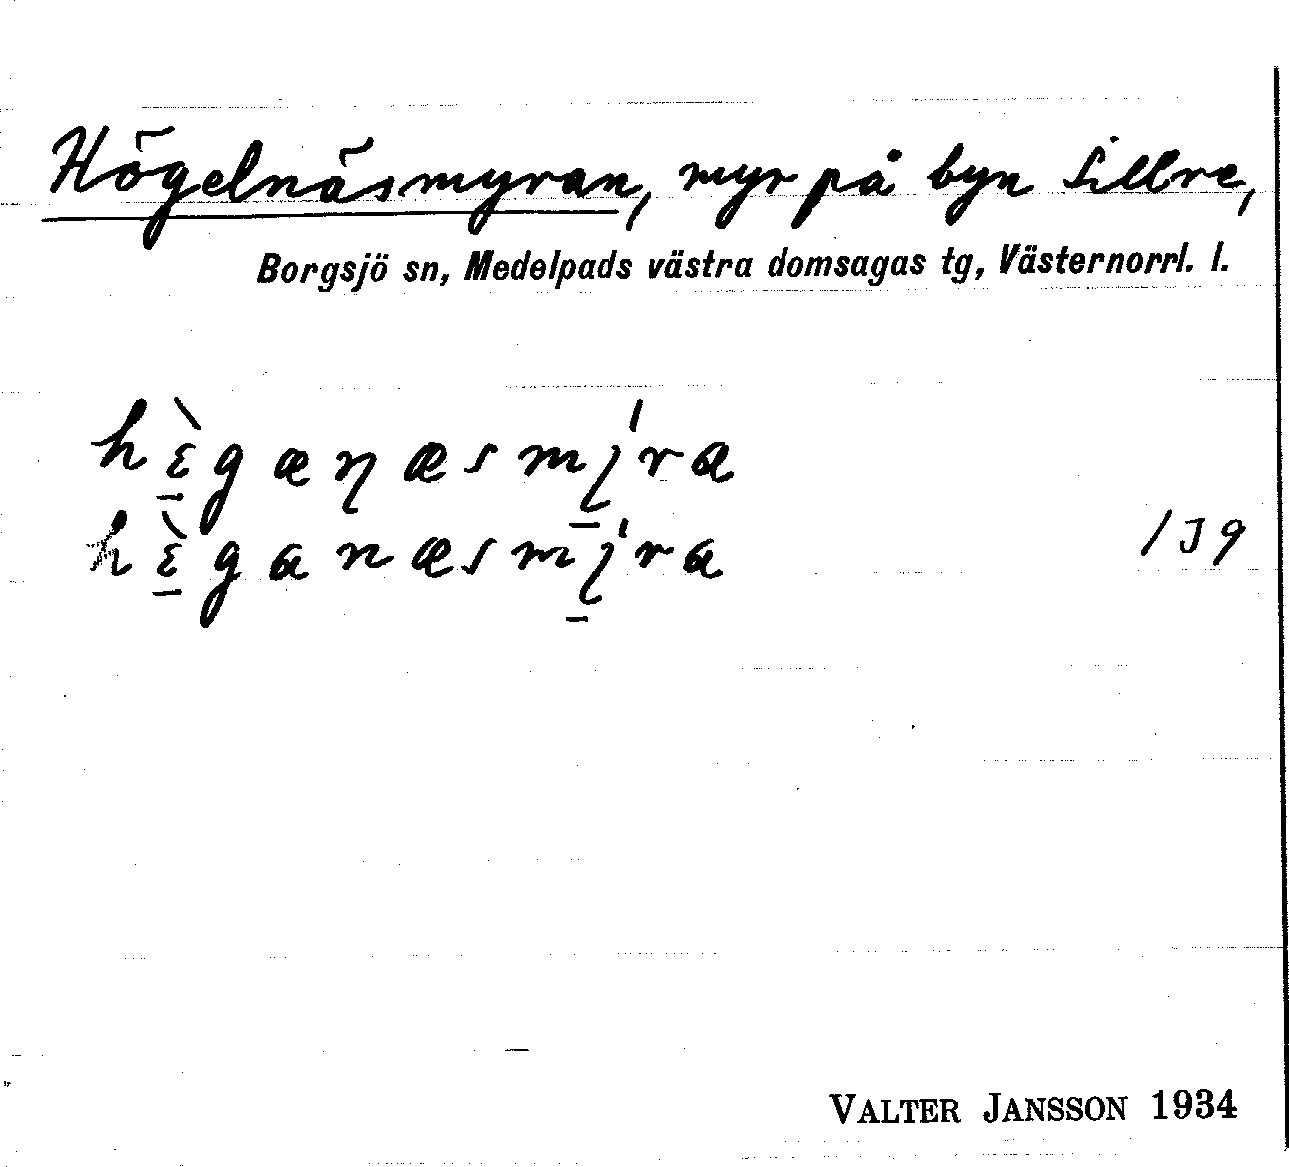 Högelnäsmyran, myr på byn Sillre,
Borgsjö sn, Medelpads västra domsagas tg, Västernorrl. l.
hɛ̠̀gæŋæsmı̠́ra
hɛ̠̀ganæsmı̠́ra 139
VALTER JANSSON 1934